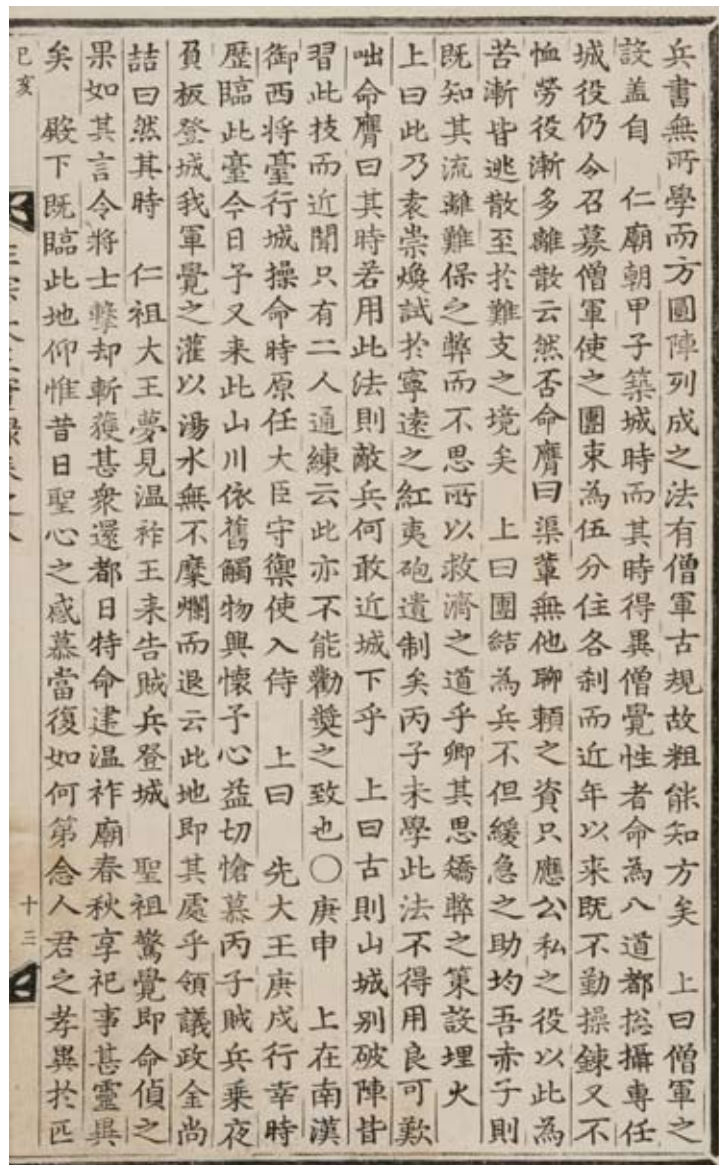 兵書無所學而方圓陣列成之法有僧軍古規故粗能知方矣 上曰僧軍之
設盖自 仁廟朝甲子築城時而其時得異僧覺性者命為八道都摠攝專任
城役仍令召募僧軍使之團束為伍分住各刹而近年以来既不勤操鍊又不
恤勞役漸多離散云然否命膺曰渠輩無他聊賴之資只應公私之役以此為
苦漸皆逃散至於難支之境矣 上曰團結為兵不但緩急之助均吾赤子則
既知其流離難保之弊而不思所以救濟之道乎卿其思矯弊之策設埋火
上曰此乃袁崇煥試於寧遠之紅夷砲遺制矣丙子未學此法不得用良可歎
咄命膺曰其時若用此法則敵兵何敢近城下乎 上曰古則山城別破陣皆
習此技而近聞只有二人通練云此亦不能勸奬之致也〇庚申 上在南漢
御西将臺行城操命時原任大臣守禦使入侍 上曰 先大王庚戌行幸時
歷臨此臺今日予又来此山川依舊觸物興懷予心益切愴慕丙子賊兵乗夜
負板登城我軍覺之灌以湯水無不糜爛而退云此地即其處乎領議政金尚
喆曰然其時 仁祖大王夢見温祚王来告賊兵登城 聖祖驚覺即命偵之
果如其言令将士擊却斬獲甚衆還都日特命建温祚廟春秋享祀事甚靈異
矣 殿下既臨此地仰惟昔日聖心之感慕當復如何第念人君之孝異於匹
己亥
十三